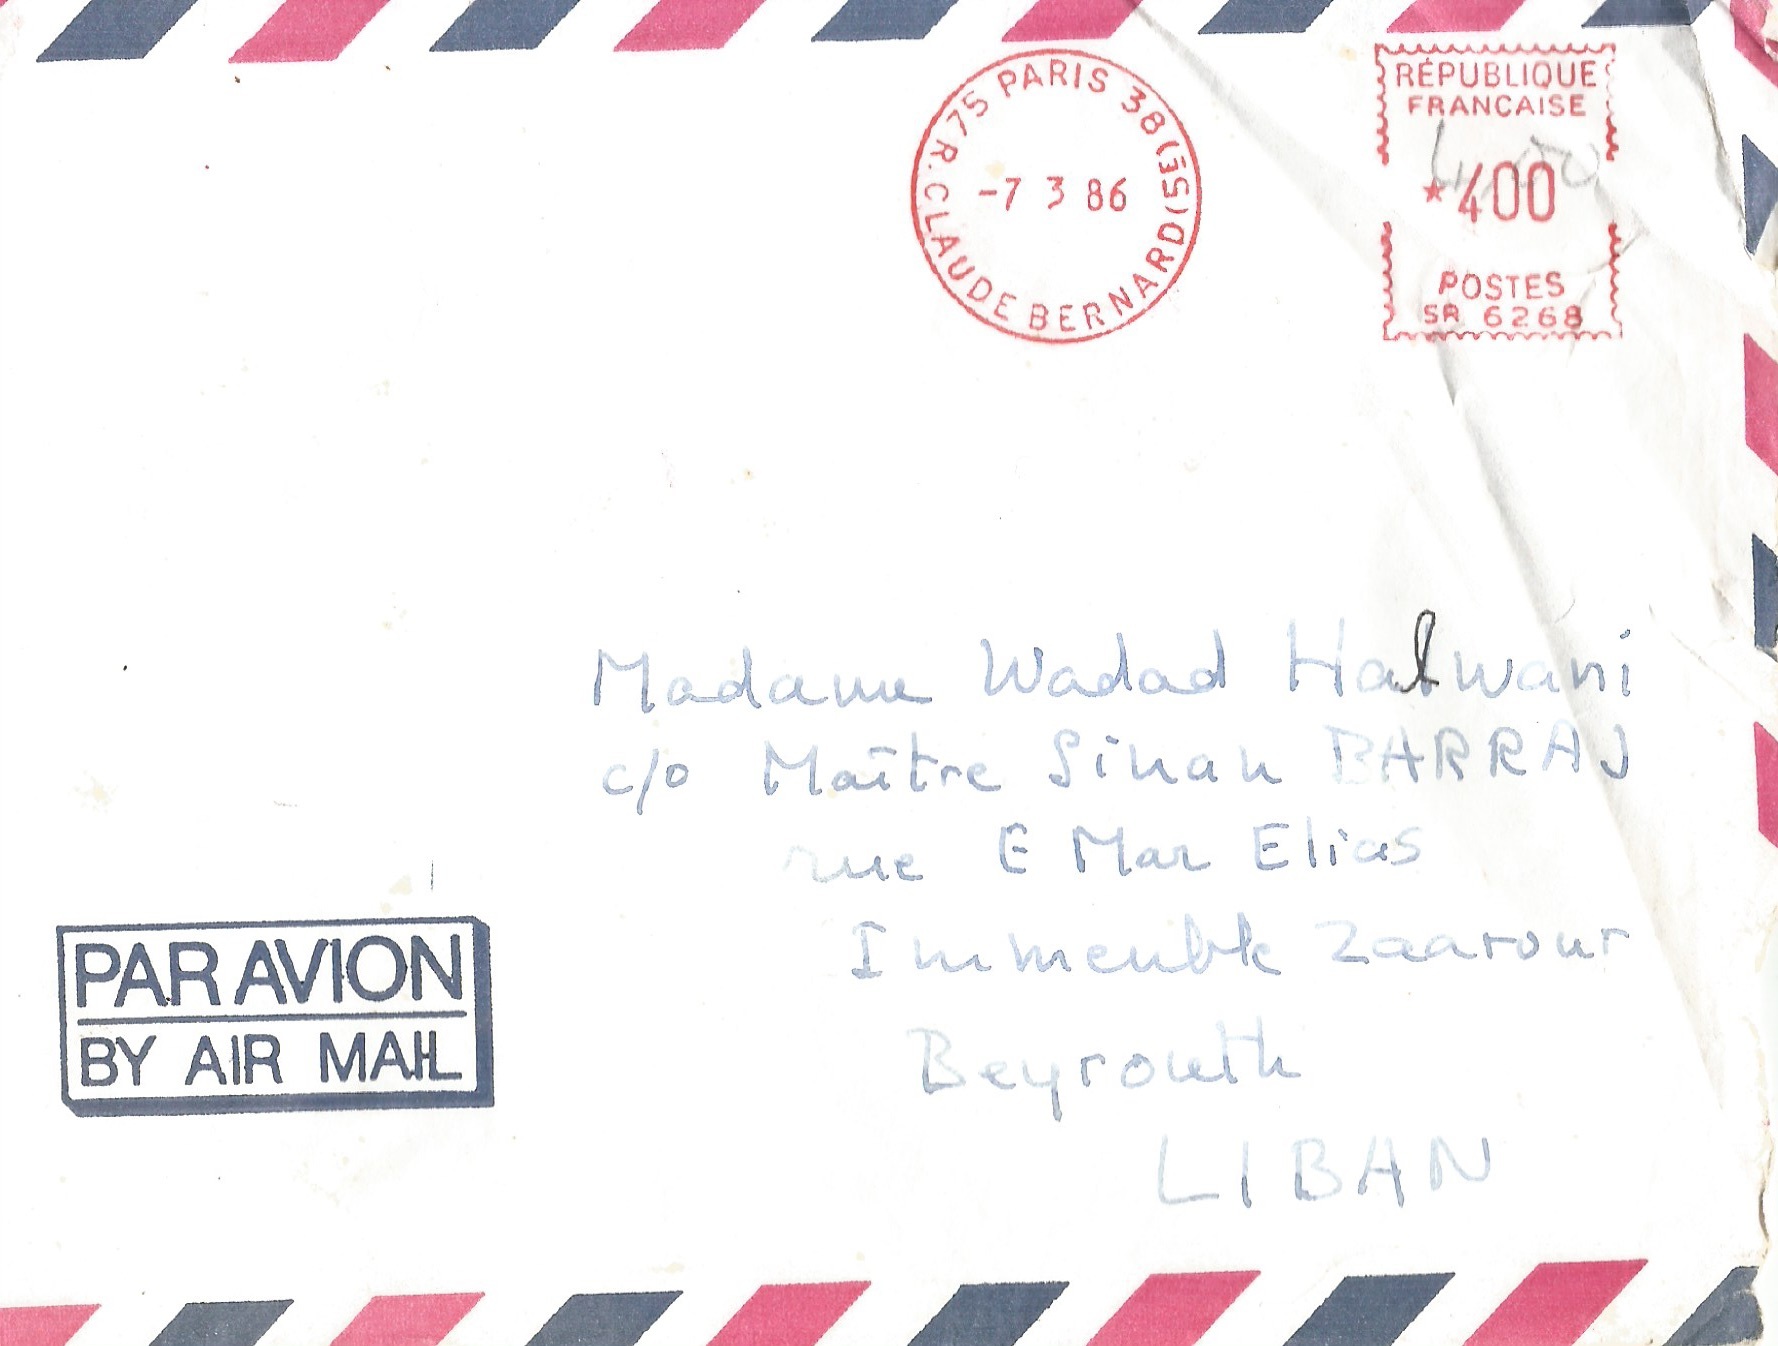 75 PARIS 38 (5E)
R. CLAUDE BERNARD (5E)
-7 3 86
RÉPUBLIQUE
FRANCAISE
4,00
*400
POSTES
SR 6268
Madame Wadad Halwani
c/o Maître Sinan BARRAJ
rue E Mar Elias
Immeuble Zaarour
Beyrouth
LIBAN
PAR AVION
BY AIR MAIL